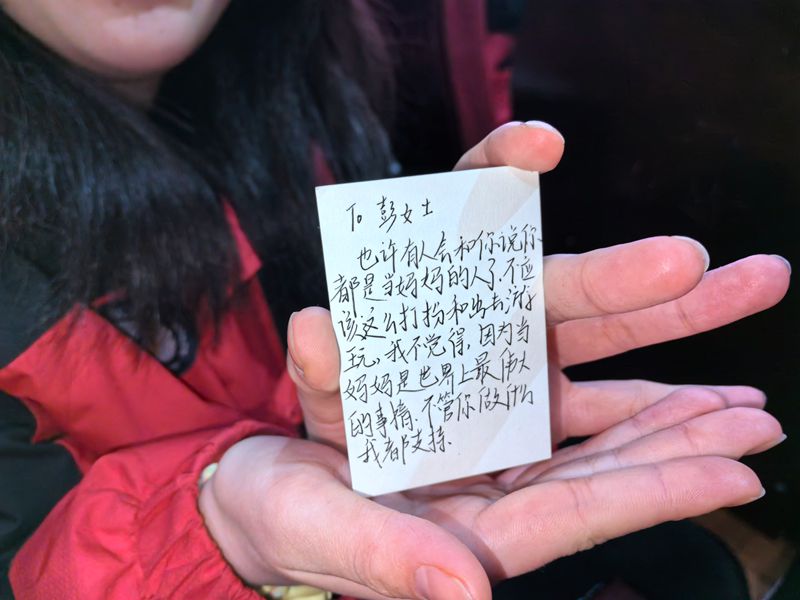 To 彭女士
也许有人会和你说你
都是当妈妈的人了、不应
该这么打扮和出去游
玩、我不觉得、因为当
妈妈是世界上最伟大
的事情、不管你做什么
我都支持.